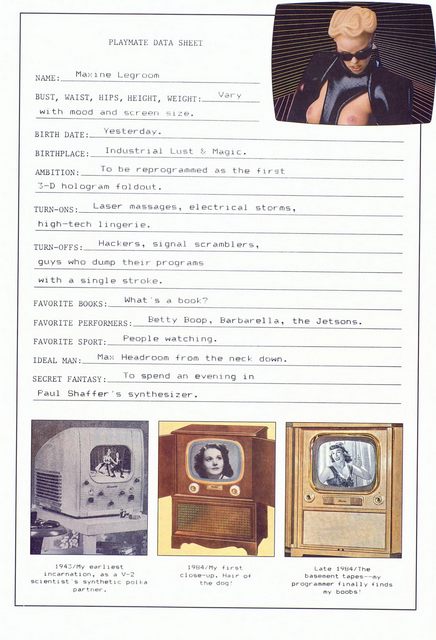 PLAYMATE DATA SHEET
NAME: Maxine Legroom
BUST, WAIST, HIPS, HEIGHT, WEIGHT: Vary
with mood and screen size.
BIRTH DATE: Yesterday.
BIRTHPLACE: Industrial Lust & Magic.
AMBITION: To be reprogrammed as the first
3-D hologram foldout.
TURN-ONS: Laser massages, electrical storms,
high-tech lingerie.
TURN-OFFS: Hackers, signal scramblers,
guys who dump their programs
with a single stroke.
FAVORITE BOOKS: What's a book?
FAVORITE PERFORMERS: Betty Boop, Barbarella, the Jetsons.
FAVORITE SPORT: People watching.
IDEAL MAN: Max Headroom from the neck down.
SECRET FANTASY: To spend an evening in
Paul Shaffer's synthesizer.
1943/My earliest
incarnation, as a V-2
scientist's synthetic polka
partner.
1984/My first
close-up. Hair of
the dog!
Late 1984/The
basement tapes--my
programmer finally finds
my boobs!